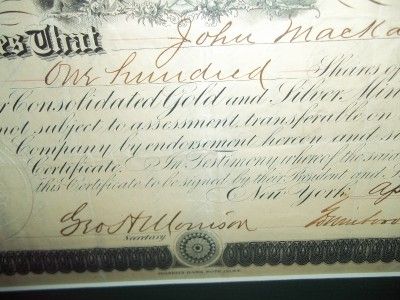 es That John Macka
One hundred Shares of
Consolidated Gold and Silver Min
not subject to assessment, transferable on
Company by endorsement hereon and su
Certificate. In Testimony whereof the said
this Certificate to be signed by their President and
New York, Ap
Geo H Morrison
Secretary